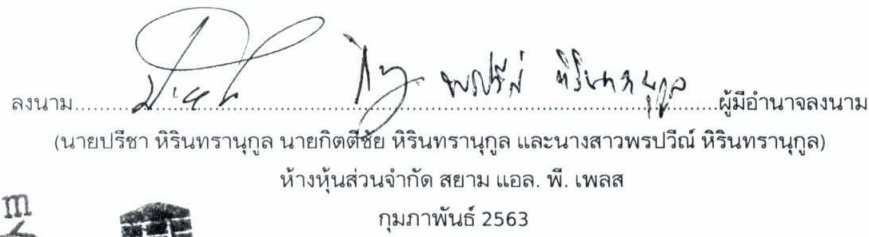 ลงนาม........พรปวีณ์ หิรินทรานุกูล........ผู้มีอำนาจลงนาม
(นายปรีชา หิรินทรานุกูล นายกิตตีชัย หิรินทรานุกูล และนางสาวพรปวีณ์ หิรินทรานุกูล)
ห้างหุ้นส่วนจำกัด สยาม แอล. พี. เพลส
กุมภาพันธ์ 2563